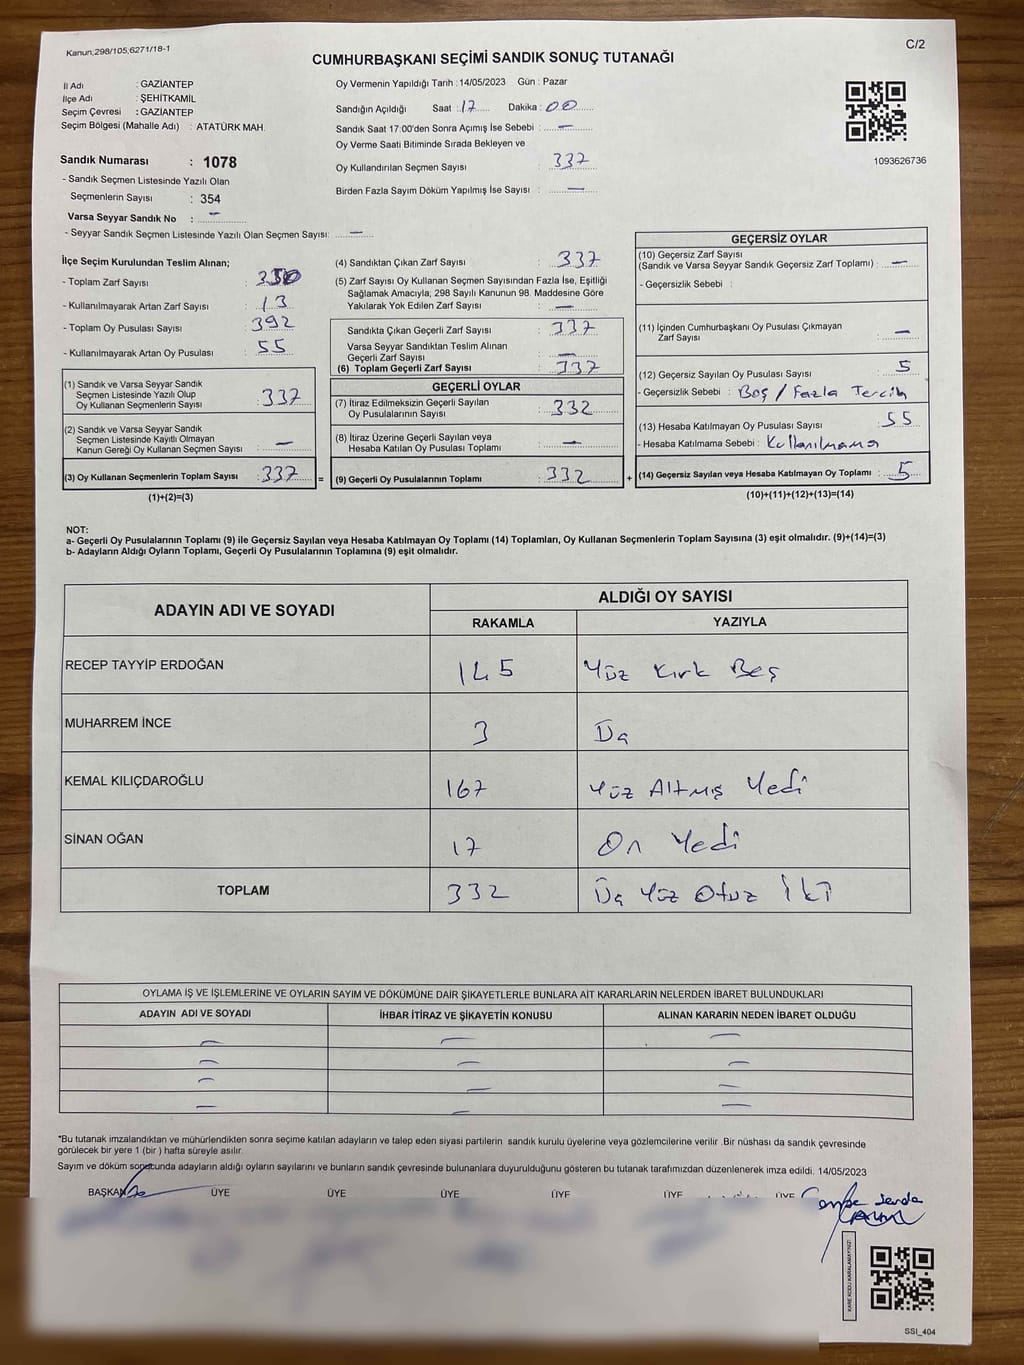 Kanun,298/105,6271/18-1
C/2
CUMHURBAŞKANI SEÇİMİ SANDIK SONUÇ TUTANAĞI
İl Adı : GAZİANTEP
İlçe Adı : ŞEHİTKAMİL
Seçim Çevresi : GAZİANTEP
Seçim Bölgesi (Mahalle Adı) : ATATÜRK MAH.
Sandık Numarası : 1078
- Sandık Seçmen Listesinde Yazılı Olan
Seçmenlerin Sayısı : 354
Varsa Seyyar Sandık No : –
- Seyyar Sandık Seçmen Listesinde Yazılı Olan Seçmen Sayısı: –
Oy Vermenin Yapıldığı Tarih : 14/05/2023 Gün : Pazar
Sandığın Açıldığı Saat : 17 Dakika : 00
Sandık Saat 17:00'den Sonra Açımış İse Sebebi : –
Oy Verme Saati Bitiminde Sırada Bekleyen ve
Oy Kullandırılan Seçmen Sayısı : 337
Birden Fazla Sayım Döküm Yapılmış İse Sayısı : –
1093626736
İlçe Seçim Kurulundan Teslim Alınan;
- Toplam Zarf Sayısı :
- Kullanılmayarak Artan Zarf Sayısı : 13
- Toplam Oy Pusulası Sayısı : 392
- Kullanılmayarak Artan Oy Pusulası : 55
(1) Sandık ve Varsa Seyyar Sandık
Seçmen Listesinde Yazılı Olup
Oy Kullanan Seçmenlerin Sayısı : 337
(2) Sandık ve Varsa Seyyar Sandık
Seçmen Listesinde Kayıtlı Olmayan
Kanun Gereği Oy Kullanan Seçmen Sayısı : –
(3) Oy Kullanan Seçmenlerin Toplam Sayısı : 337 =
(1)+(2)=(3)
(4) Sandıktan Çıkan Zarf Sayısı : 337
(5) Zarf Sayısı Oy Kullanan Seçmen Sayısından Fazla İse, Eşitliği
Sağlamak Amacıyla; 298 Sayılı Kanunun 98. Maddesine Göre
Yakılarak Yok Edilen Zarf Sayısı : –
Sandıkta Çıkan Geçerli Zarf Sayısı : 337
Varsa Seyyar Sandıktan Teslim Alınan
Geçerli Zarf Sayısı : –
(6) Toplam Geçerli Zarf Sayısı : 337
GEÇERLİ OYLAR
(7) İtiraz Edilmeksizin Geçerli Sayılan
Oy Pusulalarının Sayısı : 332
(8) İtiraz Üzerine Geçerli Sayılan veya
Hesaba Katılan Oy Pusulası Toplamı : –
(9) Geçerli Oy Pusulalarının Toplamı : 332 +
GEÇERSİZ OYLAR
(10) Geçersiz Zarf Sayısı
(Sandık ve Varsa Seyyar Sandık Geçersiz Zarf Toplamı) : –
- Geçersizlik Sebebi :
(11) İçinden Cumhurbaşkanı Oy Pusulası Çıkmayan
Zarf Sayısı : –
(12) Geçersiz Sayılan Oy Pusulası Sayısı : 5
- Geçersizlik Sebebi : Boş / Fazla Tercih
(13) Hesaba Katılmayan Oy Pusulası Sayısı : 55
- Hesaba Katılmama Sebebi : Kullanılmama
(14) Geçersiz Sayılan veya Hesaba Katılmayan Oy Toplamı : 5
(10)+(11)+(12)+(13)=(14)
NOT:
a- Geçerli Oy Pusulalarının Toplamı (9) ile Geçersiz Sayılan veya Hesaba Katılmayan Oy Toplamı (14) Toplamları, Oy Kullanan Seçmenlerin Toplam Sayısına (3) eşit olmalıdır. (9)+(14)=(3)
b- Adayların Aldığı Oyların Toplamı, Geçerli Oy Pusulalarının Toplamına (9) eşit olmalıdır.
ADAYIN ADI VE SOYADI
ALDIĞI OY SAYISI
RAKAMLA YAZIYLA
RECEP TAYYİP ERDOĞAN 145 Yüz Kırk Beş
MUHARREM İNCE 3 Üç
KEMAL KILIÇDAROĞLU 167 Yüz Altmış Yedi
SİNAN OĞAN 17 On Yedi
TOPLAM 332 Üç Yüz Otuz İki
OYLAMA İŞ VE İŞLEMLERİNE VE OYLARIN SAYIM VE DÖKÜMÜNE DAİR ŞİKAYETLERLE BUNLARA AİT KARARLARIN NELERDEN İBARET BULUNDUKLARI
ADAYIN ADI VE SOYADI İHBAR İTİRAZ VE ŞİKAYETİN KONUSU ALINAN KARARIN NEDEN İBARET OLDUĞU
– – –
– – –
– – –
– – –
*Bu tutanak imzalandıktan ve mühürlendikten sonra seçime katılan adayların ve talep eden siyasi partilerin sandık kurulu üyelerine veya gözlemcilerine verilir .Bir nüshası da sandık çevresinde
görülecek bir yere 1 (bir ) hafta süreyle asılır.
Sayım ve döküm sonucunda adayların aldığı oyların sayılarını ve bunların sandık çevresinde bulunanlara duyurulduğunu gösteren bu tutanak tarafımızdan düzenlenerek imza edildi. 14/05/2023
BAŞKAN ÜYE ÜYE ÜYE ÜYE ÜYE ÜYE
KARE KODU KARALAMAYINIZ!
SSI_404